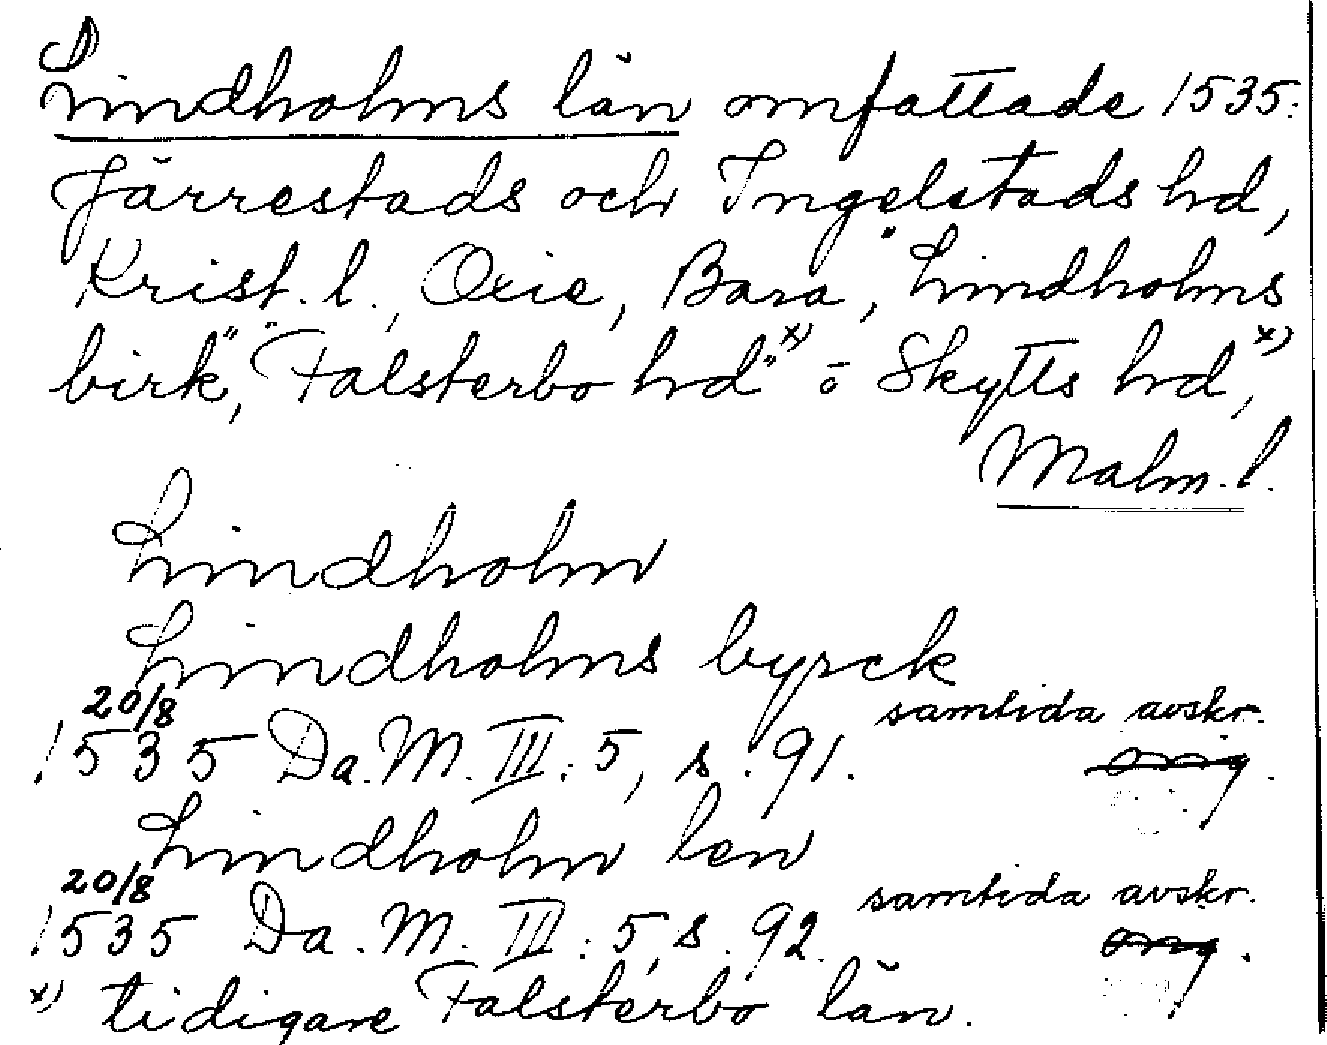 Lindholms län omfattade 1535:
Järrestads och Ingelstads hd,
Krist. l., Oxie, Bara, "Lindholms
birk", "Falsterbo hd" x) o Skytts hd, x)
Malm. l.
Lindholm
Lindholms byrck
20/8 samtida avskr.
1535 Da. M. III: 5, s. 91. orig.
Lindholm len
20/8 samtida avskr.
1535 Da. M. III: 5, s. 92. orig.
x) tidigare Falsterbo län.